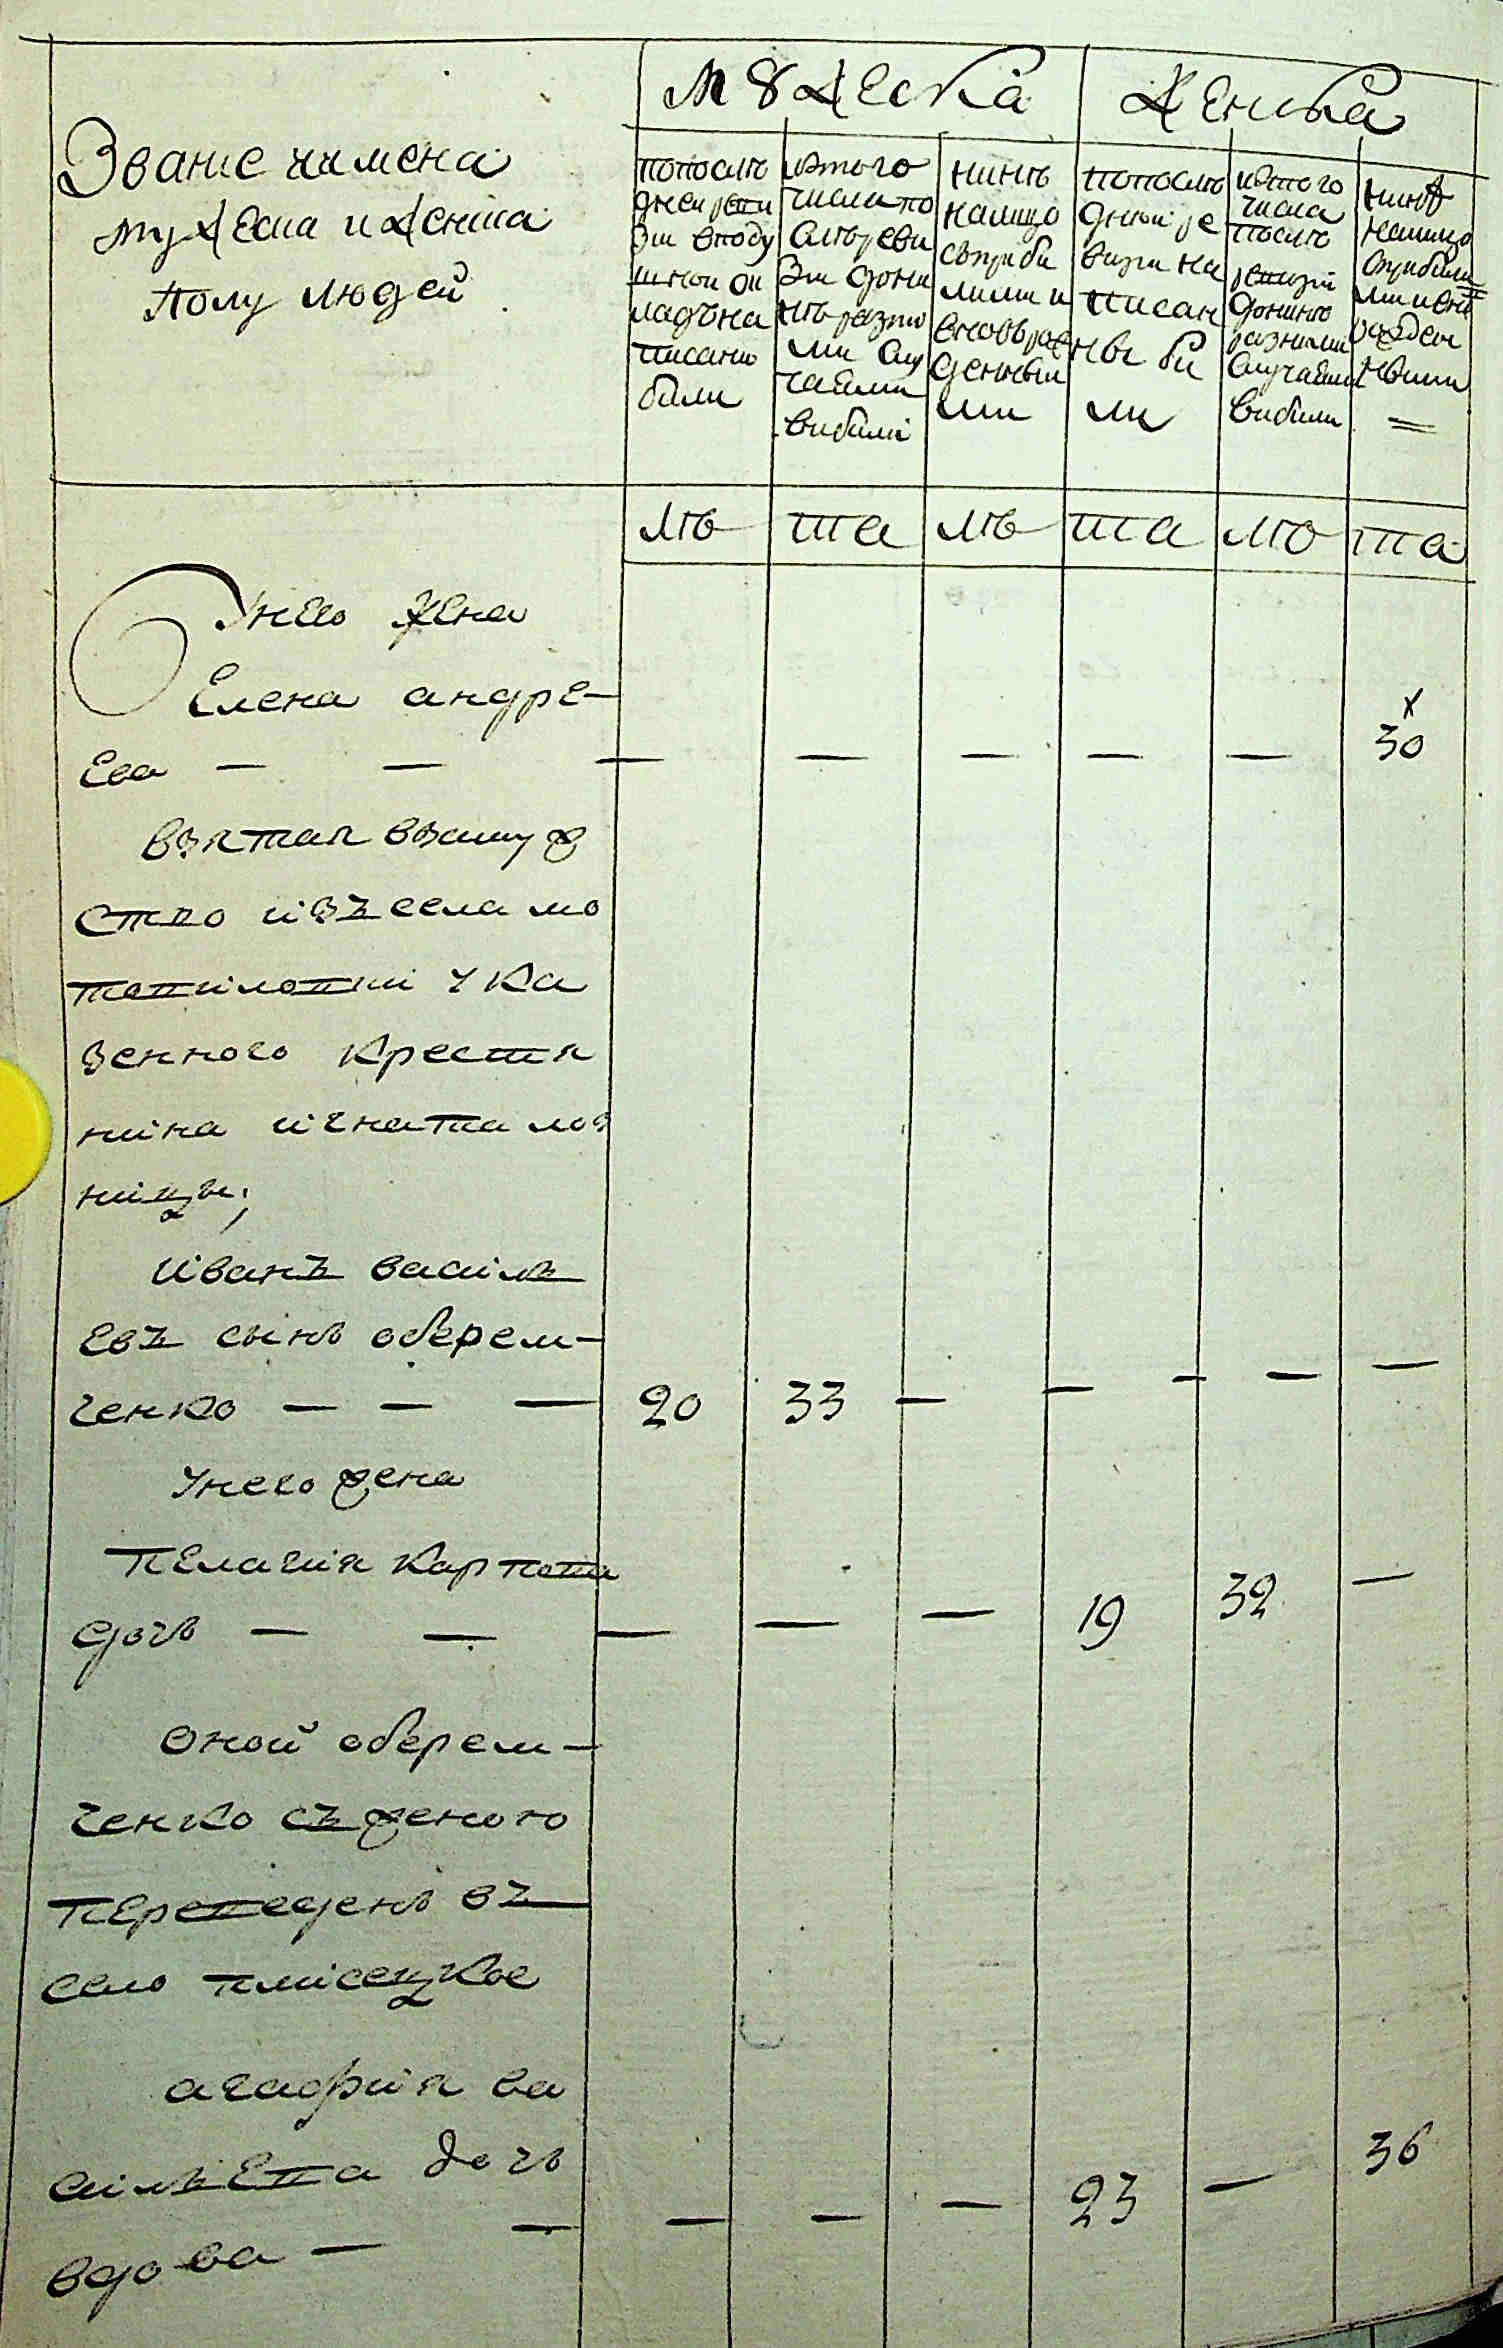 мужеска
женска
Звание и имена
мужеска и женска
полу людей
попослѣ
дней реви
зіи в поду
шной ок
ладъ на
писаны
были
изтого
числа по
слѣ реви
зіи до ни
нѣ разны
ми слу
чаями
выбыли
нинѣ
налицо
съ приби
лыми и
вновь рож
денный
ми
попослѣ
дней ре
визіи на
писан
ны бы
ли
изтого
числа
послѣ
ревизіи
до нинѣ
разными
случаями
выбыли
нинѣ
налицо
с прибилы
ми и вно
рожден
ными
лѣ
та
лѣ
та
лѣ
та
У него жена
Елена андре-
ева — — — — — — — 30
взятая взамуж
ство изъ села мо
товиловки у ка
зенного крестя
нина игната лоз
ницы;
иванъ василь
евъ сынъ оберем-
ченко — — — 20 33 — — — — —
у него жена
пелагия карпова
дочь — — — — — 19 32 —
оной оберем-
ченко съ женою
переведенъ въ
село плисецкое
агафия ва
сильева дочь
вдова — — — — — 23 — 36